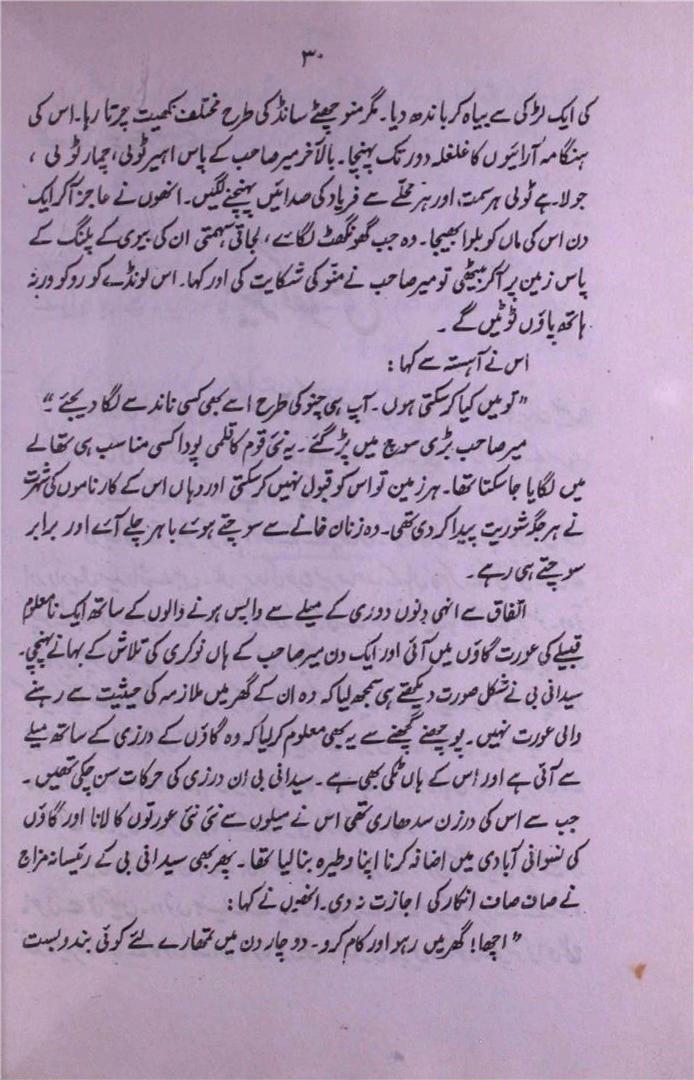 ۳۰
کی ایک لڑکی سے بیاہ کر باندھ دیا۔ مگر منو چھٹے سانڈ کی طرح مختلف کھیت چرتا رہا۔ اس کی
ہنگامہ آرائیوں کا غلغلہ دور تک پہنچا۔ بالآخر میر صاحب کے پاس اہیر ٹولی، چمار ٹولی ،
جولاہے ٹولی ہر سمت اور ہر محلّے سے فریاد کی صدائیں پہنچنے لگیں۔ انھوں نے عاجز آ کر ایک
دن اس کی ماں کو بلوا بھیجا۔ وہ جب گھونگھٹ لگائے، لجاتی سہمتی ان کی بیوی کے پلنگ کے
پاس زمین پر آ کر بیٹھی تو میر صاحب نے منّو کی شکایت کی اور کہا۔ اس لونڈے کو روکو ورنہ
ہاتھ پاؤں ٹوٹیں گے ۔
اس نے آہستہ سے کہا :
”تو میں کیا کر سکتی ہوں۔ آپ ہی چنو کی طرح اسے بھی کسی ناند سے لگا دیجئے“
میر صاحب بڑی سوچ میں پڑ گئے۔ یہ نئی قوم کا قلمی پودا کسی مناسب ہی تھالے
میں لگایا جا سکتا تھا۔ ہر زمین تو اس کو قبول نہیں کر سکتی اور وہاں اس کے کارناموں کی شہرت
نے ہر جگہ شوریت پیدا کر دی تھی۔ وہ زنان خانے سے سوچتے ہوئے باہر چلے آئے اور برابر
سوچتے ہی رہے۔
اتفاق سے انہی دِنوں دوری کے میلے سے واپس ہونے والوں کے ساتھ ایک نامعلوم
قبیلے کی عورت گاؤں میں آئی اور ایک دن میر صاحب کے ہاں نوکری کی تلاش کے بہانے پہنچی۔
سیدانی بی نے شکل صورت دیکھتے ہی سمجھ لیا کہ وہ ان کے گھر میں ملازمہ کی حیثیت سے رہنے
والی عورت نہیں۔ پوچھنے گچھنے سے یہ بھی معلوم کر لیا کہ وہ گاؤں کے درزی کے ساتھ میلے
سے آئی ہے اور اُس کے ہاں ٹِکی بھی ہے۔ سیدانی بی اِن درزی کی حرکات سن چکی تھیں ۔
جب سے اس کی درزن سدھاری تھی اس نے میلوں سے نئی نئی عورتوں کا لانا اور گاؤں
کی نسوانی آبادی میں اضافہ کرنا اپنا وطیرہ بنا لیا تھا۔ پھر بھی سیدانی بی کے رئیسانہ مزاج
نے صاف صاف انکار کی اجازت نہ دی۔ انھیں نے کہا :
”اچھا! گھر میں رہو اور کام کرو۔ دو چار دن میں تمھارے لئے کوئی بندوبست